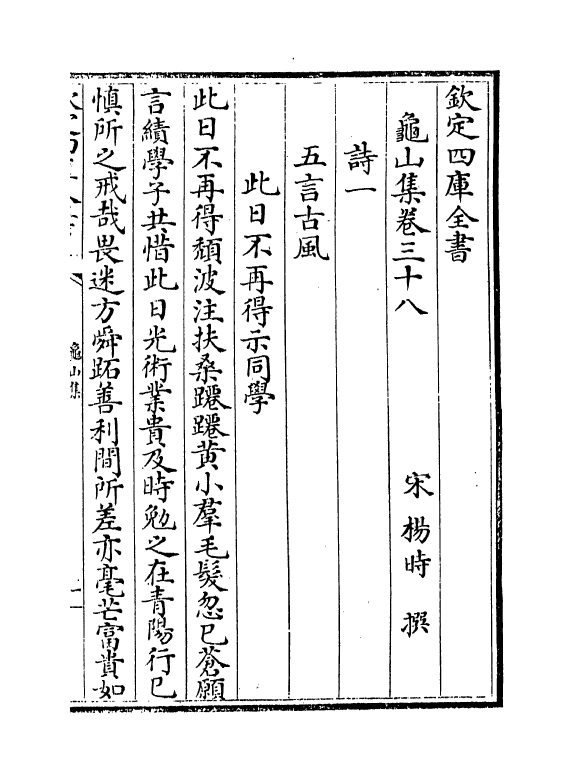 欽定四庫全書
龜山集卷三十八
宋 楊時 撰
詩一
五言古風
此日不再得示同學
此日不再得頽波注扶桑躚躚黄小羣毛髮忽已蒼願
言績學子共惜此日光術業貴及時勉之在青陽行已
慎所之戒哉畏迷方舜跖善利間所差亦毫芒富貴如
龜山集
一